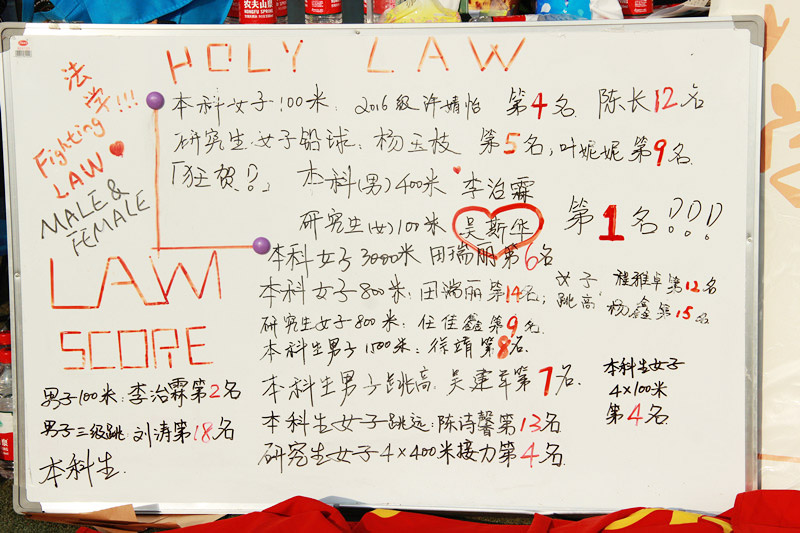 HOLY LAW
法学!!!
Fighting
LAW
MALE &
FEMALE
本科女子100米: 2016级许婧怡 第4名 陈长12名
研究生女子铅球: 杨玉枝 第5名, 叶妮妮第9名
「狂贺!?」 本科(男)400米 李治霖
研究生(女)100米 吴斯华 第1名!?!?!?
本科女子3000米 田瑞丽第6名
本科女子800米: 田瑞丽第14名; 女子跳高: 雅卓第12名
杨鑫第15名
研究生女子800米: 任佳鑫第9名
本科生男子1500米: 徐靖第8名
本科生男子跳高 吴建军第7名
本科生女子跳远: 陈诗馨第13名
研究生女子4×400米接力第4名
本科生女子
4×100米
第4名
LAW
SCORE
男子100米: 李治霖第2名
男子三级跳 刘涛第18名
本科生
农夫山泉